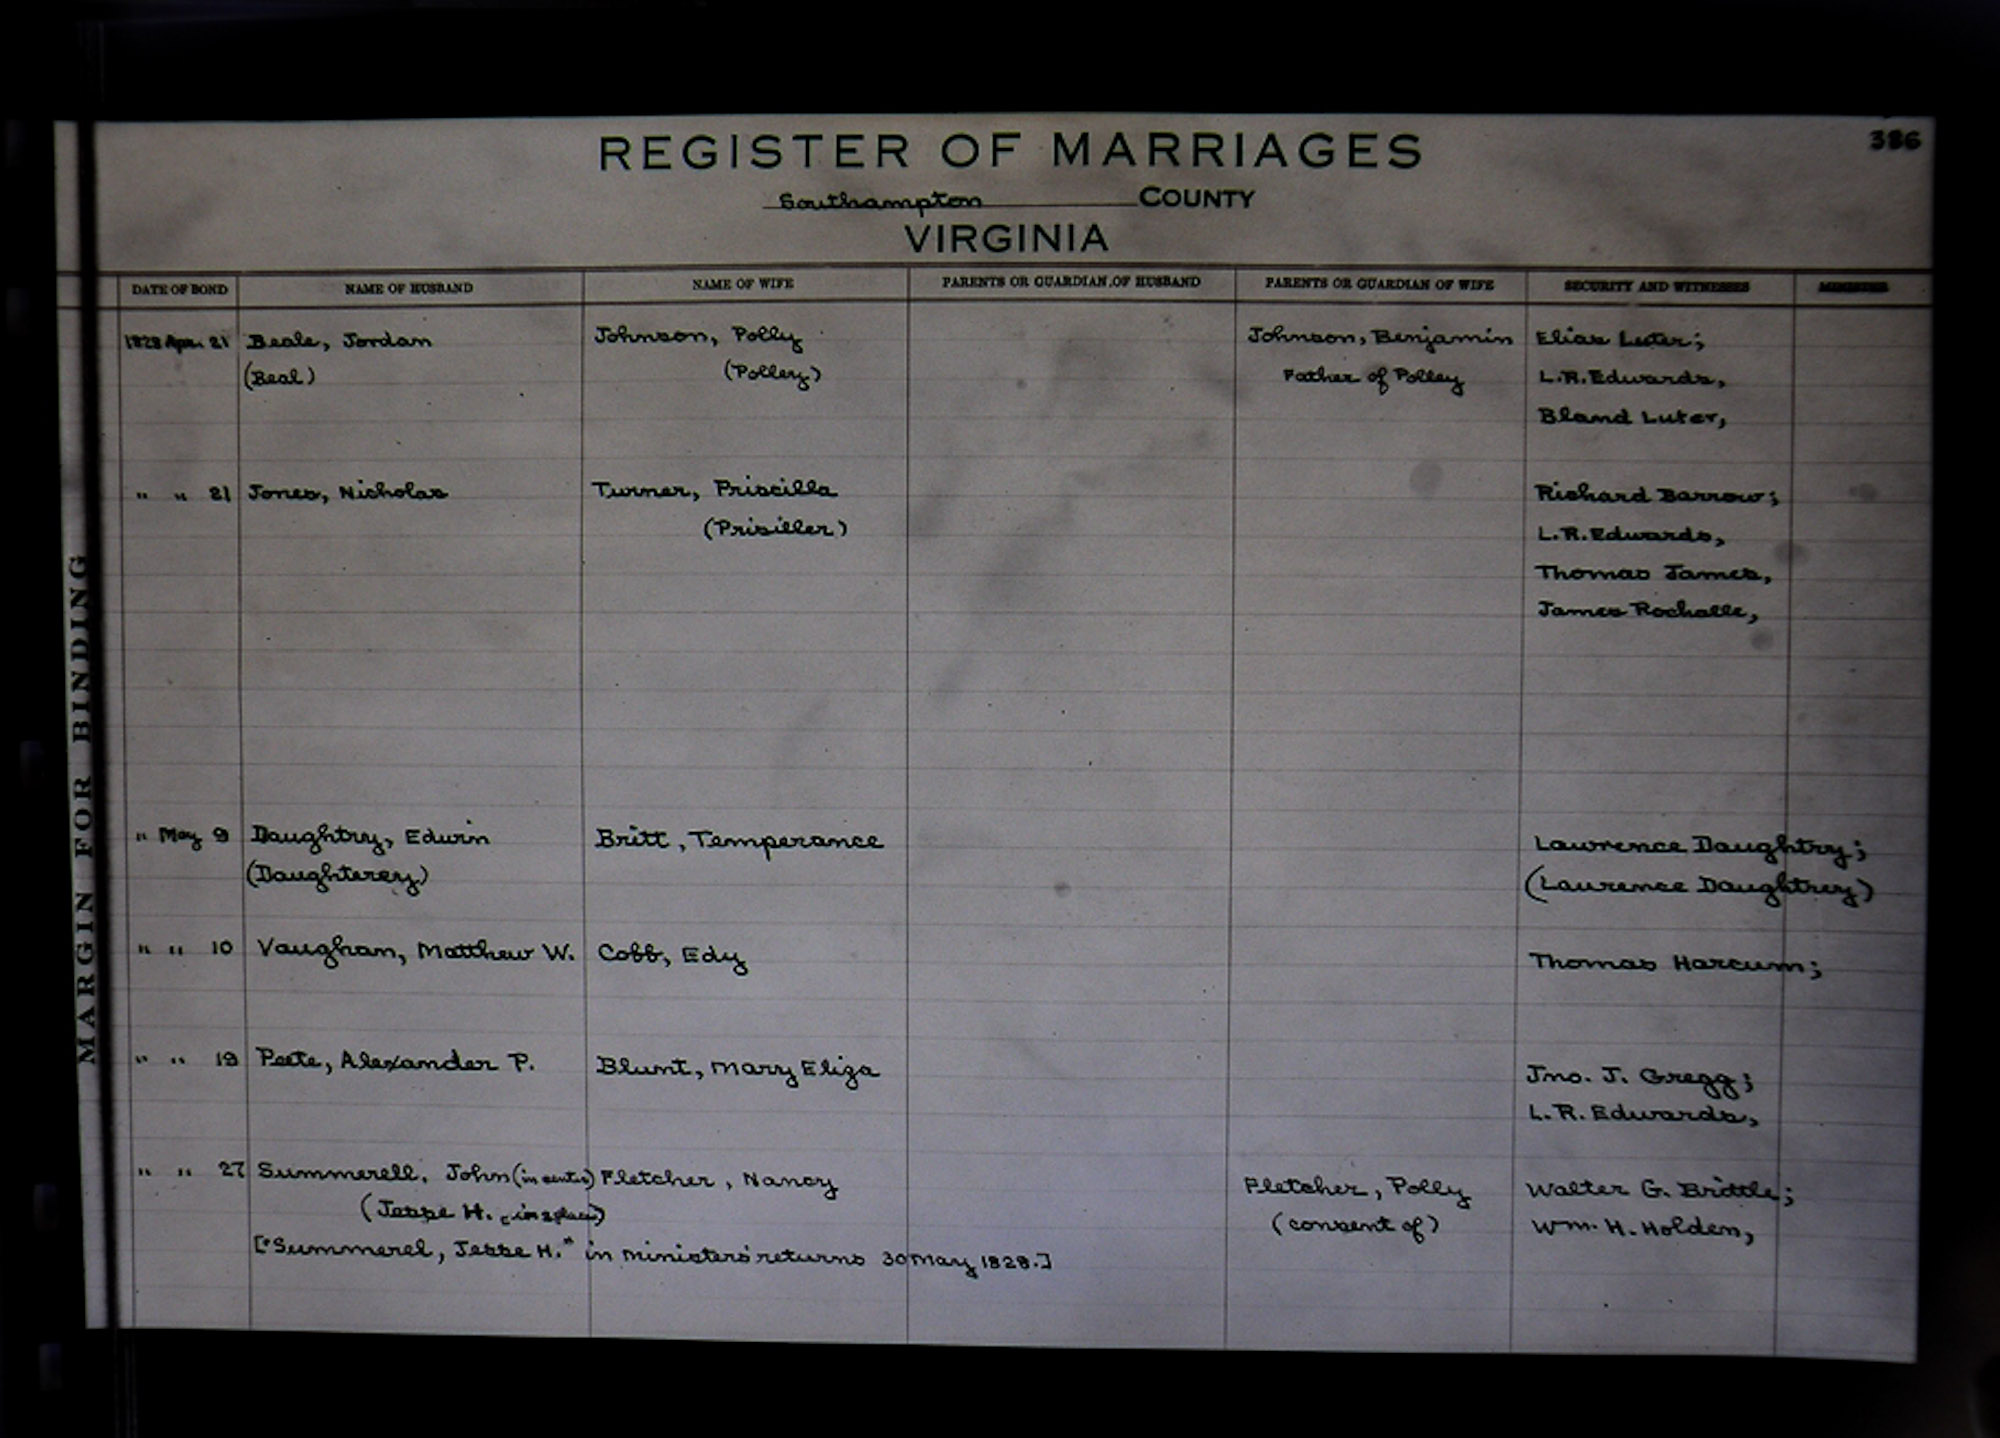 386
REGISTER OF MARRIAGES
Southampton COUNTY
VIRGINIA
MARGIN FOR BINDING
DATE OF BOND NAME OF HUSBAND NAME OF WIFE PARENTS OR GUARDIAN OF HUSBAND PARENTS OR GUARDIAN OF WIFE SECURITY AND WITNESSES MINISTER
1828 Apr. 21 Beale, Jordan Johnson, Polly Johnson, Benjamin Elias Luter;
(Beal) (Polley) Father of Polley L.R. Edwards,
Bland Luter,
" " 21 Jones, Nicholas Turner, Priscilla Richard Barrow;
(Prisiller) L.R. Edwards,
Thomas James,
James Rochelle,
" May 9 Daughtry, Edwin Britt, Temperance Lawrence Daughtry;
(Daughterey) (Laurence Daughtrey)
" " 10 Vaughan, Matthew W. Cobb, Edy Thomas Harcum;
" " 19 Peete, Alexander P. Blunt, Mary Eliza Jno. J. Gregg;
L.R. Edwards,
" " 27 Summerell, John (in center) Fletcher, Nancy Fletcher, Polly Walter G. Brittle;
(Jesse H. in 2 places) (consent of) Wm. H. Holden,
["Summerel, Jesse H." in ministers' returns 30 May 1828.]